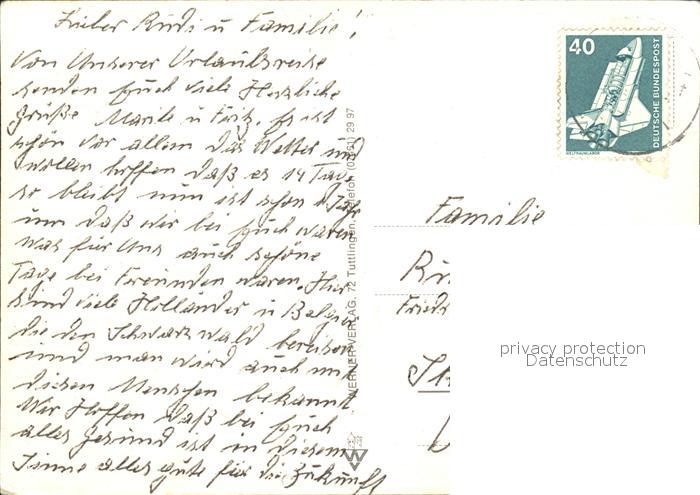 Lieber Rudi u Familie!
Von Unserer Urlaubsreise
senden Euch viele Herzliche
Grüße Marile u Fritz. Es ist
schön vor allem das Wetter und
wollen hoffen daß es 14 Tage
so bleibt nun ist schon 1 Jahr
um daß wir bei Euch waren
was für Uns auch schöne
Tage bei Freunden waren. Hier
sind viele Holländer u Belgier
die den Schwarzwald bereisen
und man wird auch mit
diesen Menschen bekannt
Wir Hoffen daß bei Euch
alles gesund ist in diesem
Sinne alles gute für die Zukunft
VERLAG, 72 Tuttlingen, Telefon 29 97
40
DEUTSCHE BUNDESPOST
WELTRAUMLABOR
Familie
Ru
Friedr
St
privacy protection
Datenschutz